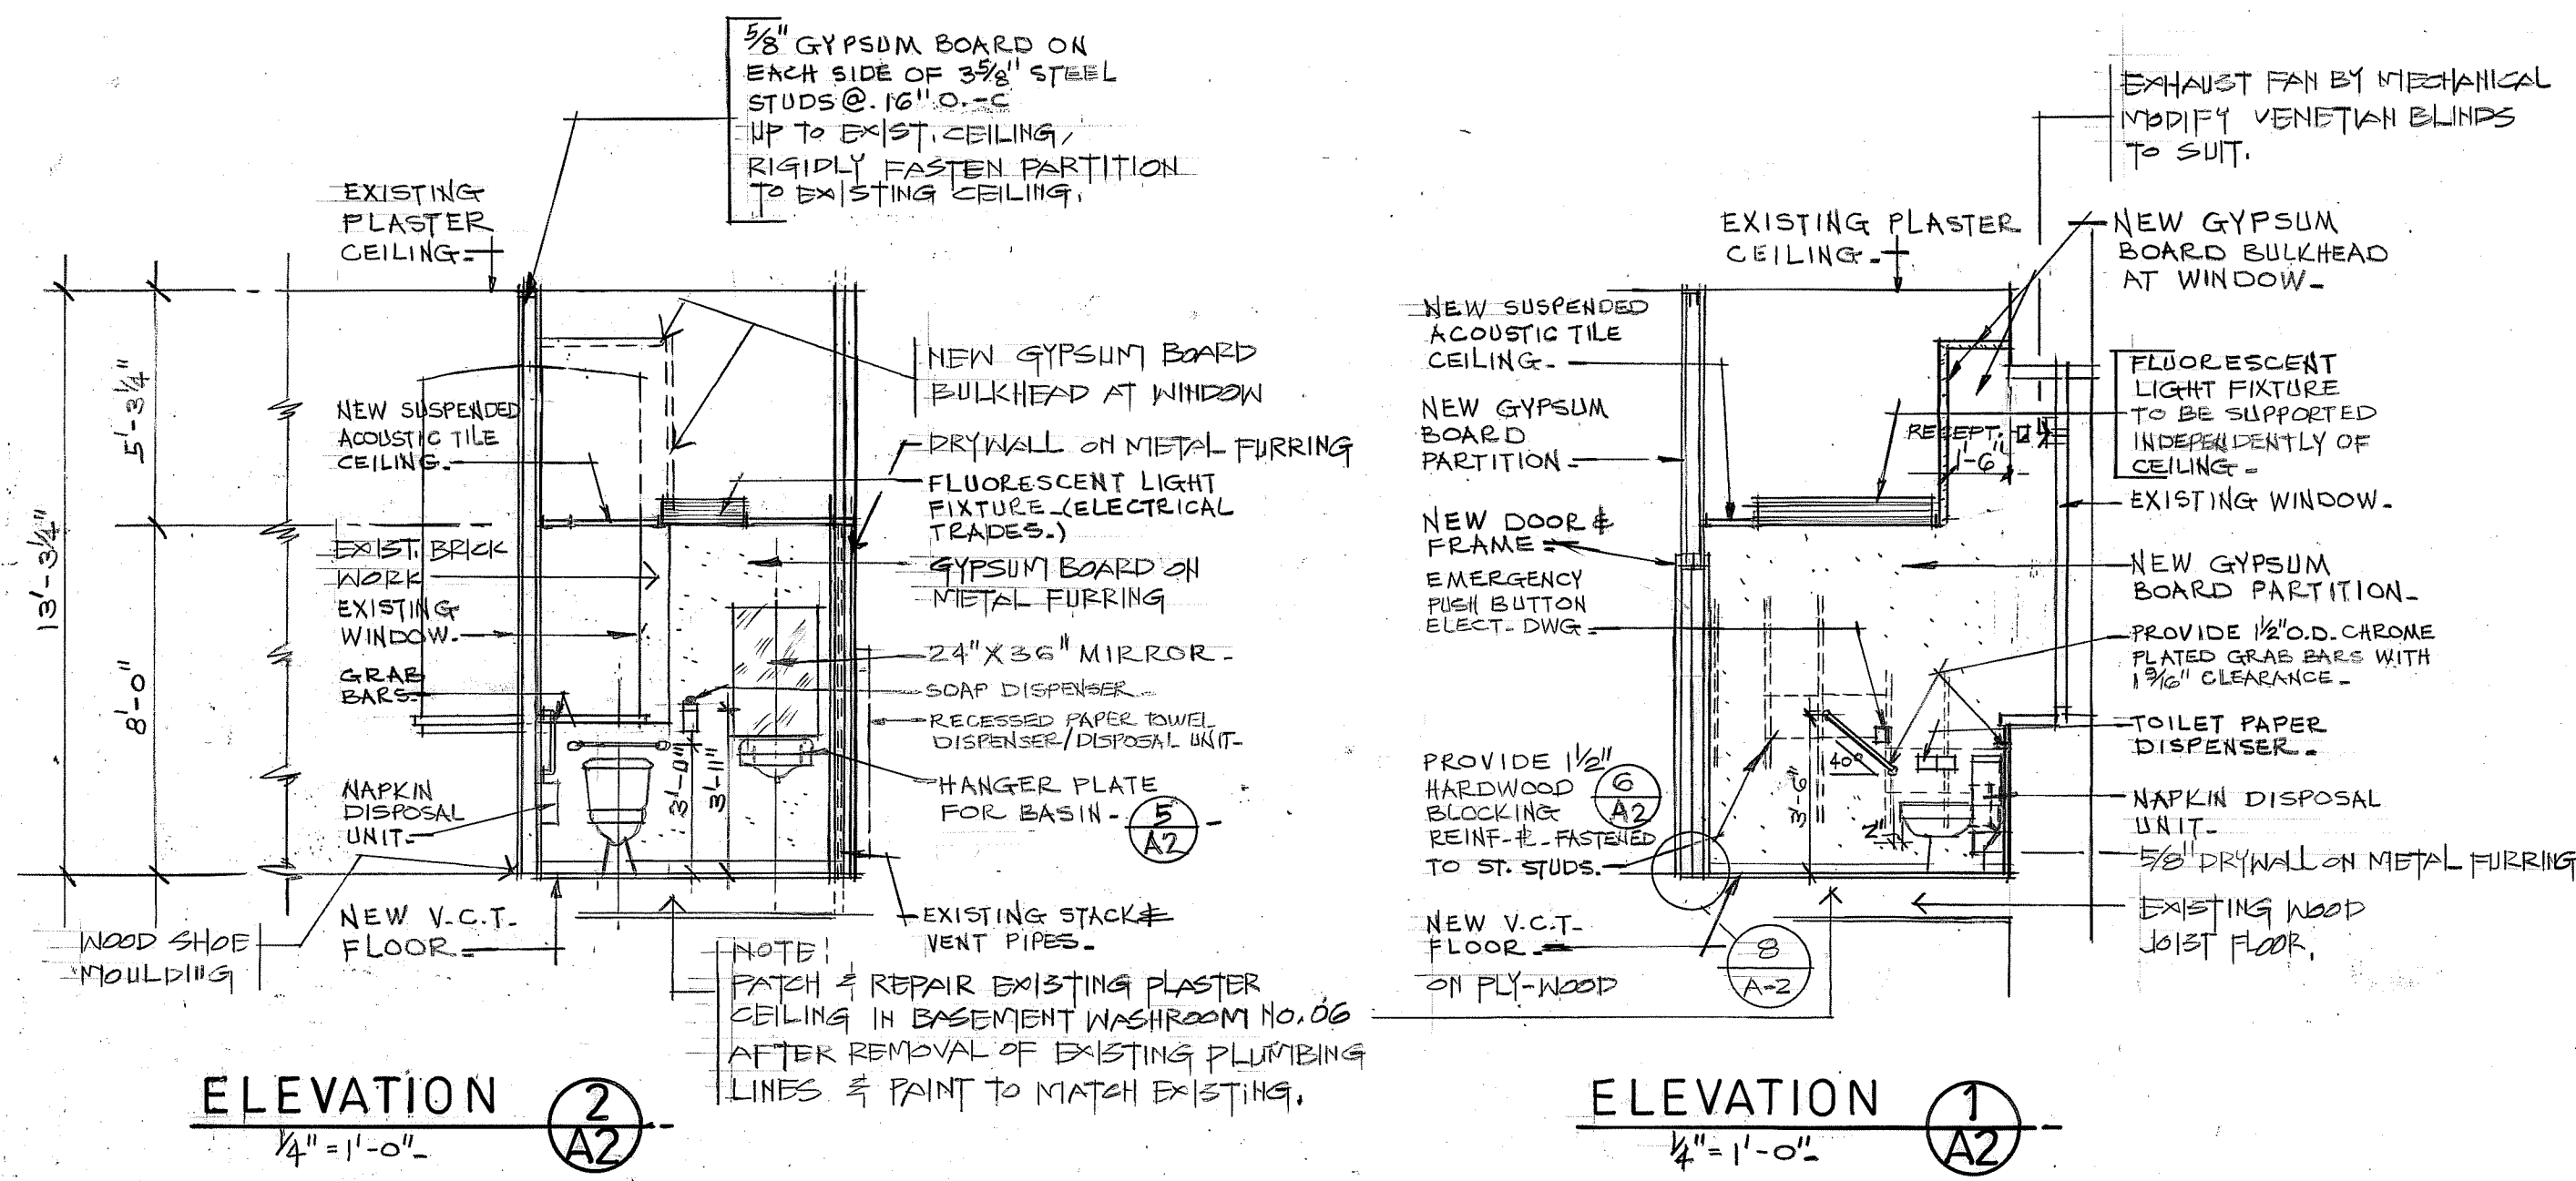 5/8" GYPSUM BOARD ON
EACH SIDE OF 3 5/8" STEEL
STUDS @. 16" O.-C
UP TO EXIST. CEILING,
RIGIDLY FASTEN PARTITION
TO EXISTING CEILING.
EXISTING
PLASTER
CEILING-
13'-3¼"
5'-3¼"
8'-0"
NEW SUSPENDED
ACOUSTIC TILE
CEILING.-
EXIST. BRICK
WORK
EXISTING
WINDOW.-
GRAB
BARS-
NAPKIN
DISPOSAL
UNIT-
WOOD SHOE
MOULDING
NEW V.C.T.-
FLOOR.-
NEW GYPSUM BOARD
BULKHEAD AT WINDOW
DRYWALL ON METAL FURRING
FLUORESCENT LIGHT
FIXTURE-(ELECTRICAL
TRADES.-)
GYPSUM BOARD ON
METAL FURRING
24" X 36" MIRROR-
SOAP DISPENSER-
RECESSED PAPER TOWEL
DISPENSER/DISPOSAL UNIT-
HANGER PLATE
FOR BASIN-
5
A2
3'-0"
3'-11"
EXISTING STACK &
VENT PIPES-
NOTE:
PATCH & REPAIR EXISTING PLASTER
CEILING IN BASEMENT WASHROOM NO. 06
AFTER REMOVAL OF EXISTING PLUMBING
LINES & PAINT TO MATCH EXISTING.
ELEVATION
2
A2
¼" = 1'-0"-
EXHAUST FAN BY MECHANICAL
MODIFY VENETIAN BLINDS
TO SUIT.
EXISTING PLASTER
CEILING-
NEW GYPSUM
BOARD BULKHEAD
AT WINDOW-
NEW SUSPENDED
ACOUSTIC TILE
CEILING.-
NEW GYPSUM
BOARD
PARTITION-
NEW DOOR &
FRAME
EMERGENCY
PUSH BUTTON
ELECT-DWG-
PROVIDE 1½"
HARDWOOD
BLOCKING
REINF-PL-FASTENED
TO ST. STUDS.-
6
A2
NEW V.C.T-
FLOOR.-
ON PLY-WOOD
8
A-2
RECEPT.
1'-6"
40°
3'-6"
2"
FLUORESCENT
LIGHT FIXTURE
TO BE SUPPORTED
INDEPENDENTLY OF
CEILING-
EXISTING WINDOW-
NEW GYPSUM
BOARD PARTITION-
PROVIDE 1½" O.D. CHROME
PLATED GRAB BARS WITH
1 9/16" CLEARANCE-
TOILET PAPER
DISPENSER-
NAPKIN DISPOSAL
UNIT-
5/8" DRYWALL ON METAL FURRING
EXISTING WOOD
JOIST FLOOR.
ELEVATION
1
A2
¼" = 1'-0"-